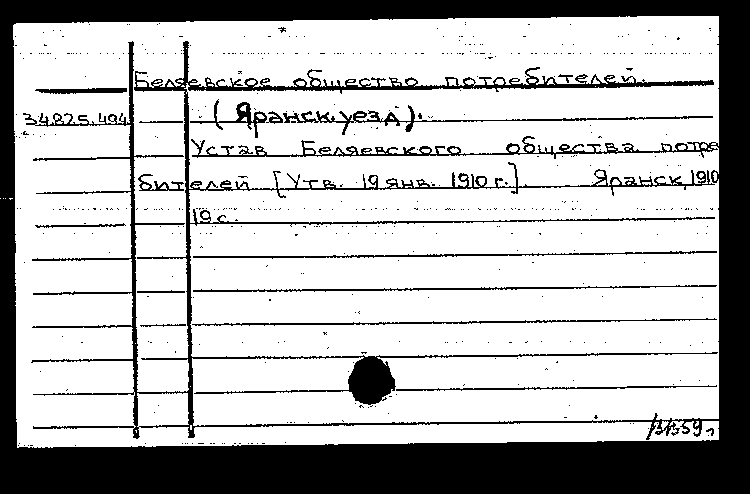 Беляевское общество потребителей.
34.825.494 (Яранск. уезд).
Устав Беляевского общества потре
бителей [Утв. 19 янв. 1910 г.]. Яранск, 1910
19 с.